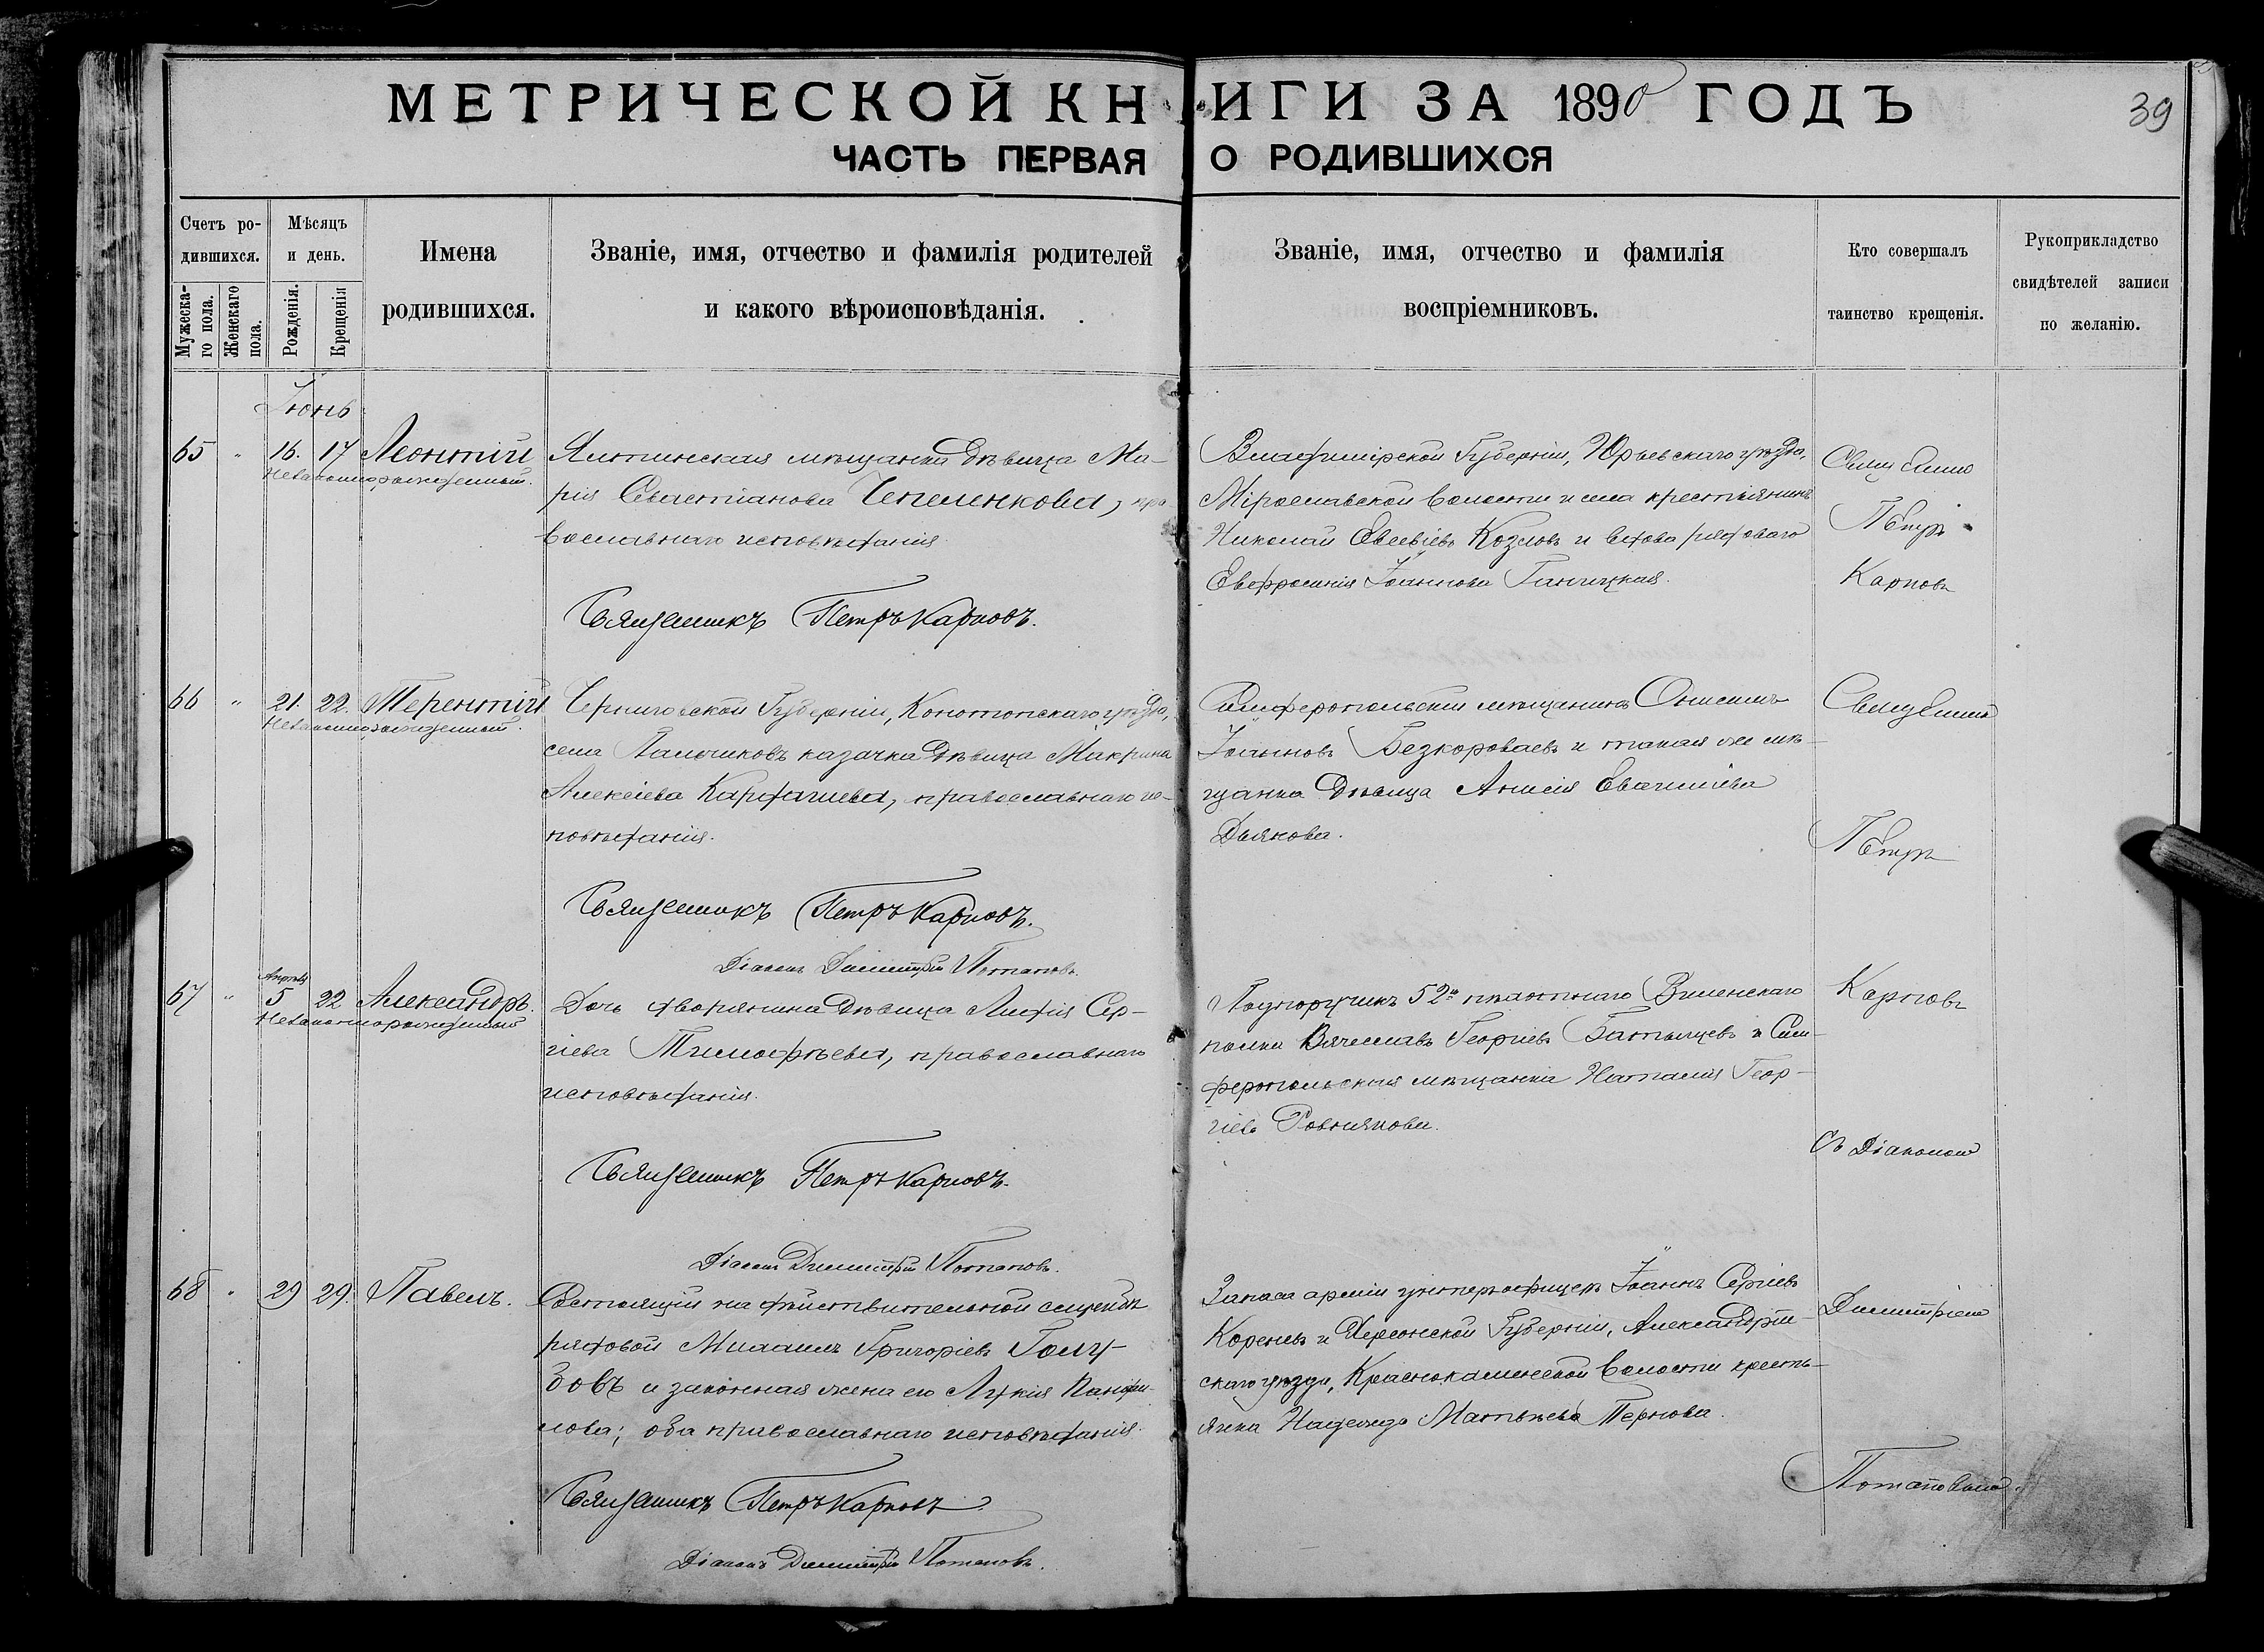 МЕТРИЧЕСКОЙ КНИГИ ЗА 1890 ГОДЪ
39
ЧАСТЬ ПЕРВАЯ О РОДИВШИХСЯ
Счетъ ро-
дившихся.
Мужеска-
го пола.
Женскаго
пола.
Мѣсяцъ
и день.
Рожденія.
Крещенія
Имена
родившихся.
Званіе, имя, отчество и фамилія родителей
и какого вѣроисповѣданія.
Званіе, имя, отчество и фамилія
воспріемниковъ.
Кто совершалъ
таинство крещенія.
Рукоприкладство
свидѣтелей записи
по желанію.
Іюнь
65 " 16. 17 Леонтій
Незаконнорожденный.
Ялтинская мѣщанка дѣвица Ма-
рія Севастіанова Чепеленкова, пра
вославнаго исповѣданія
Священникъ Петръ Карповъ.
Владимірской Губерніи, Юрьевскаго уѣзда,
Мірославской волости и села крестьянинъ
Николай Евсевіевъ Козловъ и вдова рядоваго
Евфросинія Іоаннова Ганицкая.
Священно
Петръ
Карповъ
66 " 21. 22. Терентій
Незаконнорожденный.
Черниговской Губерніи, Конотопскаго уѣзда,
села Пальчиковъ казачка дѣвица Макрина
Алексіева Кардашева, православнаго ис-
повѣданія.
Священникъ Петръ Карповъ.
Діаконъ Димитрій Потаповъ.
Симферопольскій мѣщанинъ Онисимъ
Іоанновъ Безкороваевъ и такая же мѣ-
щанка дѣвица Анисія
Дьякова.
Священно
Петръ
67 " Апрѣль 5 22 Александръ.
Незаконнорожденный
Дочь дворянина дѣвица Лидія Сер-
гіева Тимофѣева, православнаго
исповѣданія.
Священникъ Петръ Карповъ.
Діаконъ Димитрій Потаповъ.
Подпоручикъ 52го пѣхотнаго Виленскаго
полка Вячеславъ Георгіевъ Батыщевъ и Сим-
феропольская мѣщанка Наталія Геор-
гіева Ровнякова.
Карповъ
Съ Діакономъ
68 " 29 29. Павелъ.
Состоящій на дѣйствительной службѣ
рядовой Михаилъ Григоріевъ Голу-
бовъ и законная жена его Лукія Панфи-
лова; оба православнаго исповѣданія.
Священникъ Петръ Карповъ
Діаконъ Димитрій Потаповъ.
Запаса арміи унтерофицеръ Іоаннъ Сергіевъ
Кореневъ и Херсонской Губерніи, Александрій-
скаго уѣзда, Краснокаменской волости кресть-
янка Надежда Матвѣева Пернова.
Димитріемъ
Потаповымъ.